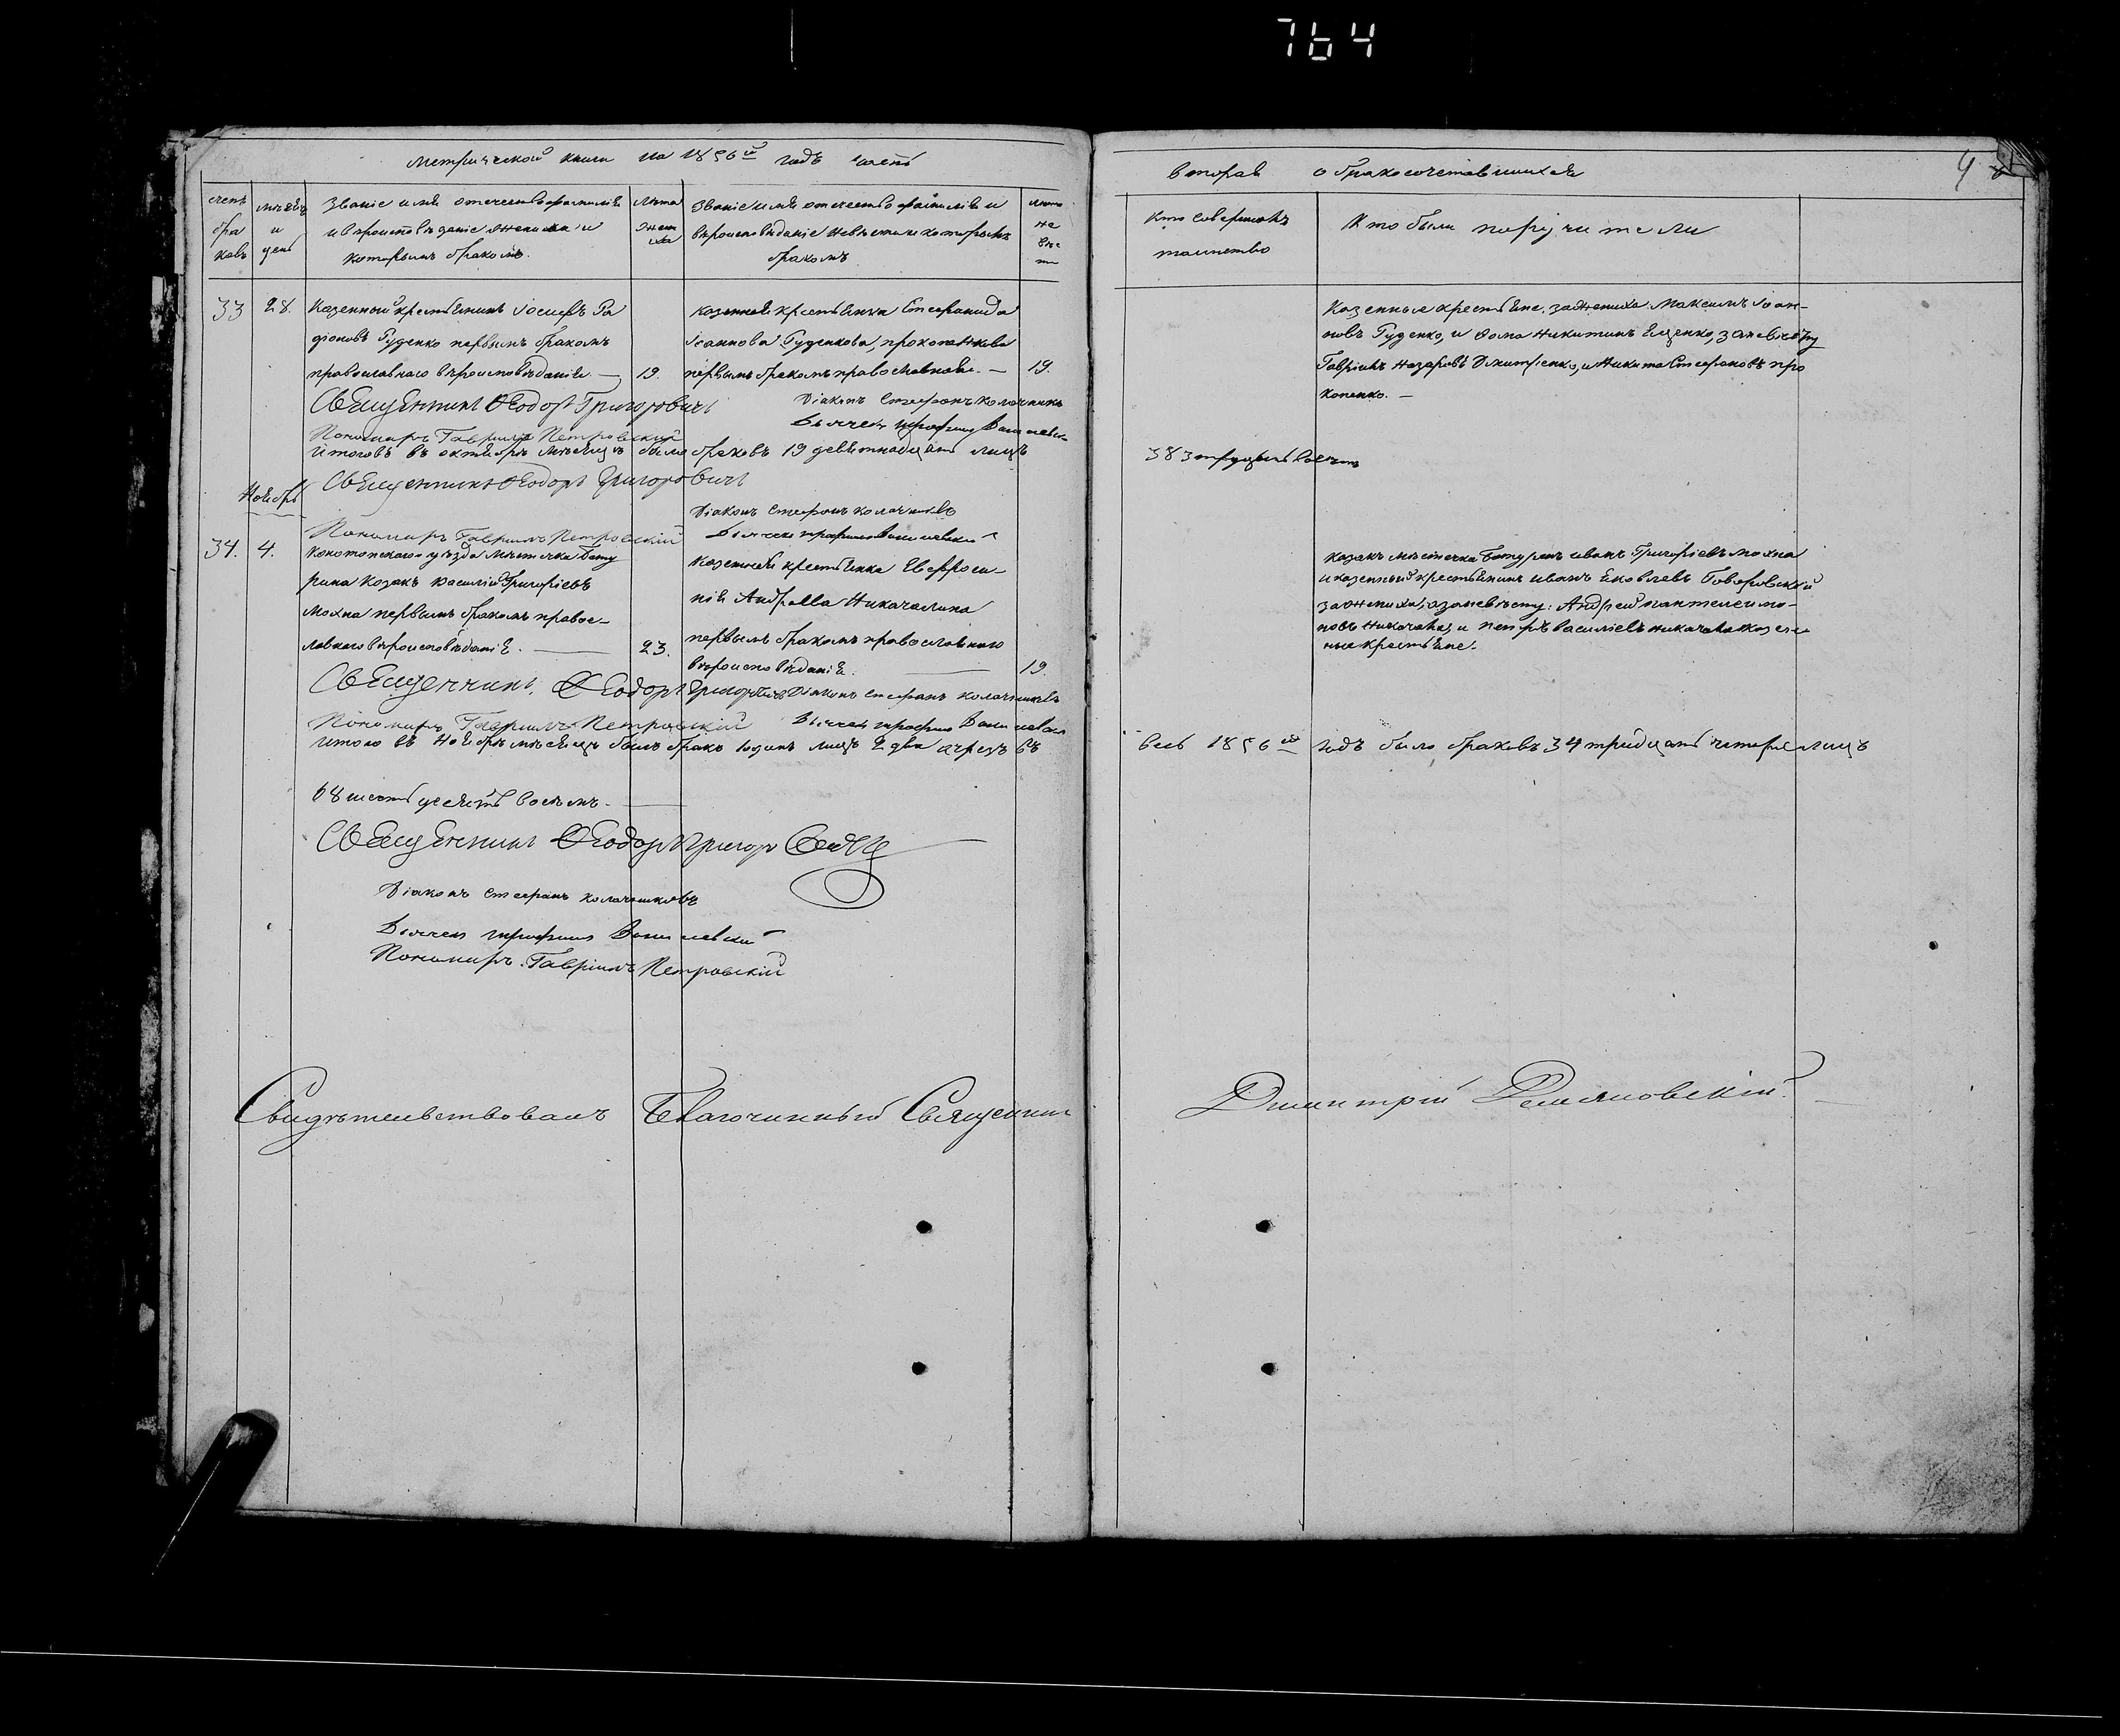 764
Метрической книги на 1856й годъ часть
вторая о бракосочетавшихся
4
счетъ браковъ
мѣсяцъ и день
Званіе имя отечество фамилія
и вѣроисповѣданіе жениха и
которымъ бракомъ.
Лѣта жениха
Званіе имя отечество фамилія и
вѣроисповѣданіе невѣсты и которымъ
бракомъ
Лѣта невѣсты
Кто совершалъ
таинство
Кто были поручители
33
28.
Казенный крестьянинъ Іосифъ Ра
діоновъ Гуденко первымъ бракомъ
православнаго вѣроисповѣданія. —
19.
казенная крестьянка Стефанида
Іоаннова Гуденкова,
первымъ бракомъ православная. —
19.
Казенные крестьяне, за жениха Максимъ Іоан-
новъ Гуденко, и Фома Никитинъ Ященко, за невѣсту
Гавріилъ Назаровъ Дмитренко, и Никита Стефановъ про
копенко. —
Священникъ Ѳеодоръ Григоровичъ
Діаконъ Стефанъ Колачниковъ
Дьячекъ Трофимъ
Пономарь Гавріилъ Петровскій
Итого въ октябрѣ мѣсяцѣ было браковъ 19 девятнадцать лицъ
38
Священникъ Ѳеодоръ Григоровичъ
Ноябрь
Діаконъ Стефанъ Колачниковъ
Пономарь Гавріилъ Петровскій
Дьячекъ Трофимъ
34.
4.
Конотопскаго уѣзда мѣстечка Бату
рина Козакъ Василій Григоріевъ
Мохна первымъ бракомъ правос-
лавнаго вѣроисповѣданія. —
23.
казенная крестьянка Евфроси-
нія Андреева
первымъ бракомъ православнаго
вѣроисповѣданія. —
19.
козакъ мѣстечка Батурина иванъ Григоріевъ Мохна
и казенный крестьянинъ иванъ Яковлевъ Говоровскій
за жениха, а за невѣсту: Андрей пантелеимо-
новъ и петръ Василіевъ казен-
ные крестьяне.
Священникъ Ѳеодоръ Григоровичъ Діаконъ Стефанъ Колачниковъ
Пономарь Гавріилъ Петровскій Дьячекъ Трофимъ
Итого въ Ноябрѣ мѣсяцѣ былъ бракъ 1 одинъ лицъ 2 два а чрезъ въ
весь 1856й годъ было браковъ 34 тридцать четыре лицъ
68 шестьдесятъ восемь. —
Священникъ Ѳеодоръ Григоровичъ
Діаконъ Стефанъ Колачниковъ
Дьячекъ Трофимъ
Пономарь Гавріилъ Петровскій
Свидѣтельствовалъ Благочинный Священникъ
Димитрій